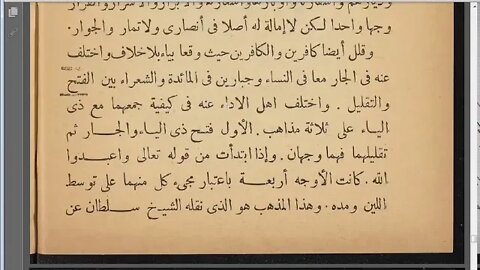 وجها واحدا لكن لاإمالة له أصلا فى أنصارى ولاتمار والجوار.
وقلل أيضا كافرين والكافرين حيث وقعا بياء بلاخلاف واختلف
عنه فى الجار معا فى النساء وجبارين فى المائدة والشعراء بين الفتح
والتقليل . واختلف اهل الاداء عنه فى كيفية جمعهما مع ذى
الياء على ثلاثة مذاهب . الأول فتح ذى الياء والجار ثم
تقليلهما فهما وجهان . واذا ابتدأت من قوله تعالى واعبدوا
الله . كانت الأوجه أربعة باعتبار مجىء كل منهما على توسط
اللين ومده . وهذا المذهب هو الذى نقله الشيخ سلطان عن